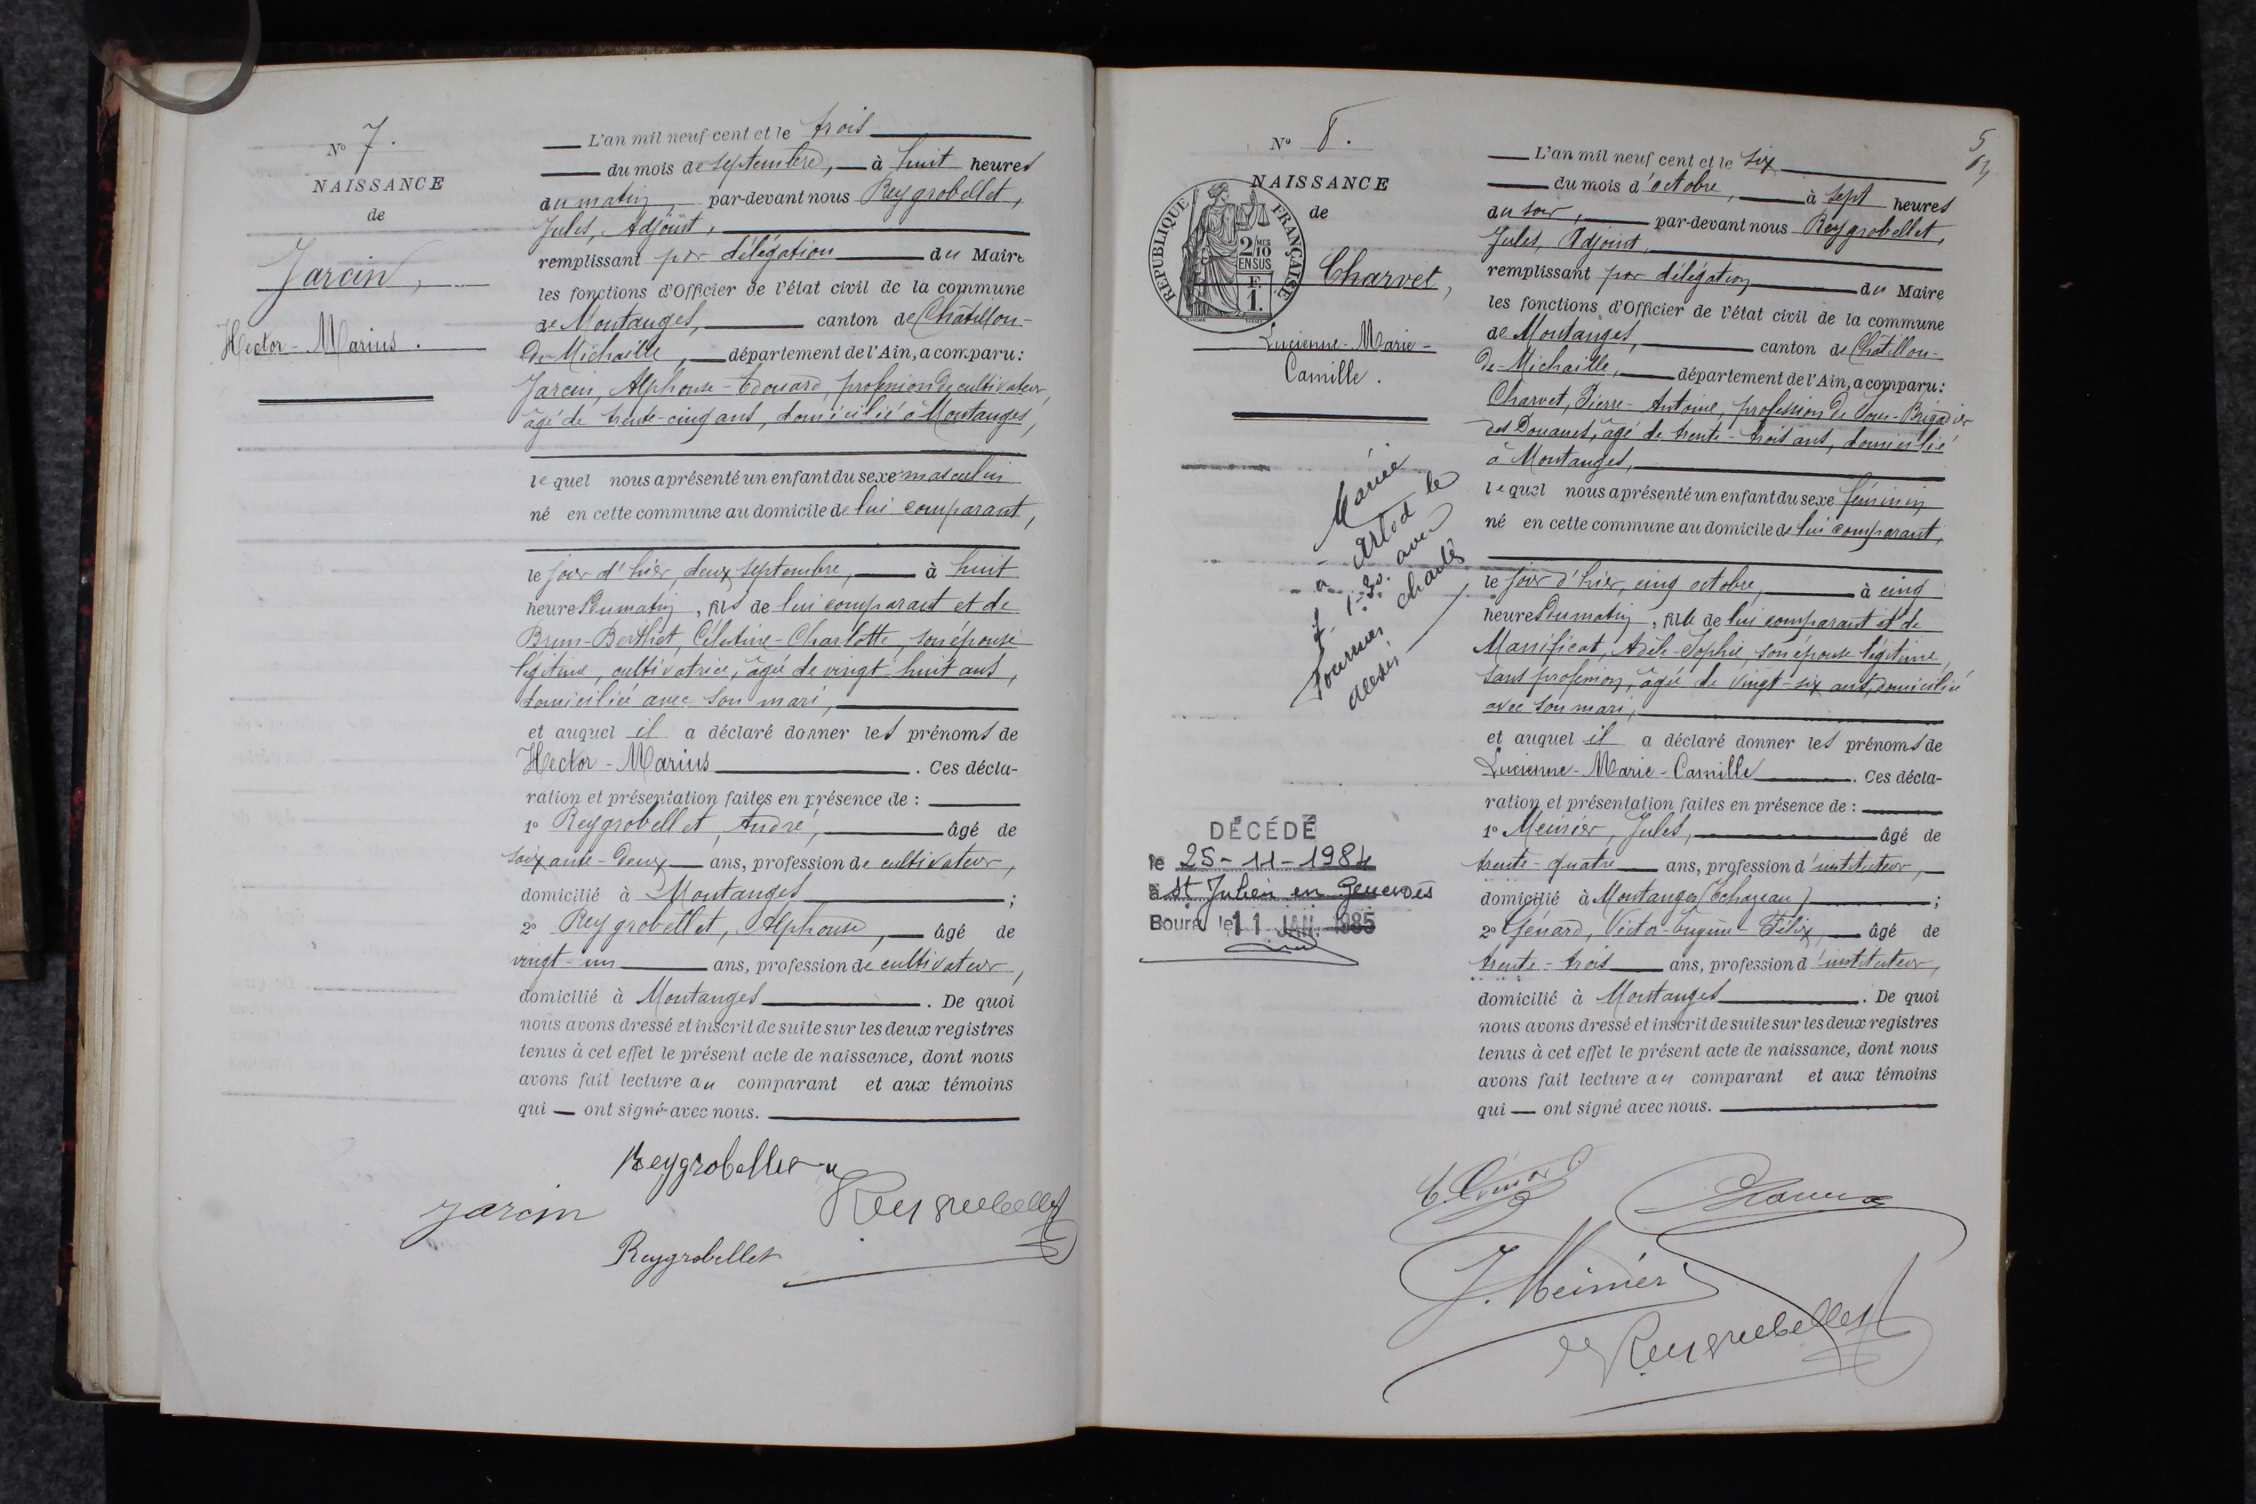 N° 7.
NAISSANCE
de
Jarcin,
Hector-Marius.
L'an mil neuf cent et le trois
du mois de septembre, à huit heures
du matin, par-devant nous Reygrobellet,
Jules, Adjoint,
remplissant par délégation du Maire
les fonctions d'Officier de l'état civil de la commune
de Montanges, canton de Châtillon-
de-Michaille, département de l'Ain, a comparu:
Jarcin, Alphonse-Edouard, profession de cultivateur,
âgé de trente-cinq ans, domicilié à Montanges,
lequel nous a présenté un enfant du sexe masculin
né en cette commune au domicile de lui comparant,
le jour d'hier, deux septembre, à huit
heures du matin, fils de lui comparant et de
Brun-Berthet, Célestine-Charlotte, son épouse
légitime, cultivatrice, âgée de vingt-huit ans,
domiciliée avec son mari,
et auquel il a déclaré donner les prénoms de
Hector-Marius. Ces décla-
ration et présentation faites en présence de :
1° Reygrobellet, André, âgé de
soixante-deux ans, profession de cultivateur,
domicilié à Montanges ;
2° Reygrobellet, Alphonse, âgé de
vingt-un ans, profession de cultivateur,
domicilié à Montanges. De quoi
nous avons dressé et inscrit de suite sur les deux registres
tenus à cet effet le présent acte de naissance, dont nous
avons fait lecture au comparant et aux témoins
qui ont signé avec nous.
Reygrobellet
Jarcin
Reygrobellet
Reygrobellet
5
N° 8.
NAISSANCE
de
RÉPUBLIQUE FRANÇAISE
2/10 MES
EN SUS
F.
1.
Charvet,
Lucienne-Marie-
Camille.
Mariée
à Arlod le
avec
Fournier Charles
DÉCÉDÉ
le 25-11-1984
à St Julien en Genevois
Bourg le 11 JAN. 1985
L'an mil neuf cent et le six
du mois d'octobre, à sept heures
du soir, par-devant nous Reygrobellet,
Jules, Adjoint,
remplissant par délégation du Maire
les fonctions d'Officier de l'état civil de la commune
de Montanges, canton de Châtillon-
de-Michaille, département de l'Ain, a comparu:
Charvet, Pierre-Antoine, profession de Sous-Brigadier
des Douanes, âgé de trente-trois ans, domicilié
à Montanges,
lequel nous a présenté un enfant du sexe féminin
né en cette commune au domicile de lui comparant,
le jour d'hier, cinq octobre, à cinq
heures du matin, fille de lui comparant et de
Manificat, Adèle-Sophie, son épouse légitime,
sans profession, âgée de vingt-six ans, domiciliée
avec son mari,
et auquel il a déclaré donner les prénoms de
Lucienne-Marie-Camille. Ces décla-
ration et présentation faites en présence de :
1° Meinier, Jules, âgé de
trente-quatre ans, profession d'instituteur,
domicilié à Montanges (Echazeau) ;
2° Génard, Victor-Eugène-Félix, âgé de
trente-trois ans, profession d'instituteur,
domicilié à Montanges. De quoi
nous avons dressé et inscrit de suite sur les deux registres
tenus à cet effet le présent acte de naissance, dont nous
avons fait lecture au comparant et aux témoins
qui ont signé avec nous.
Charvet
J. Meinier
Reygrobellet